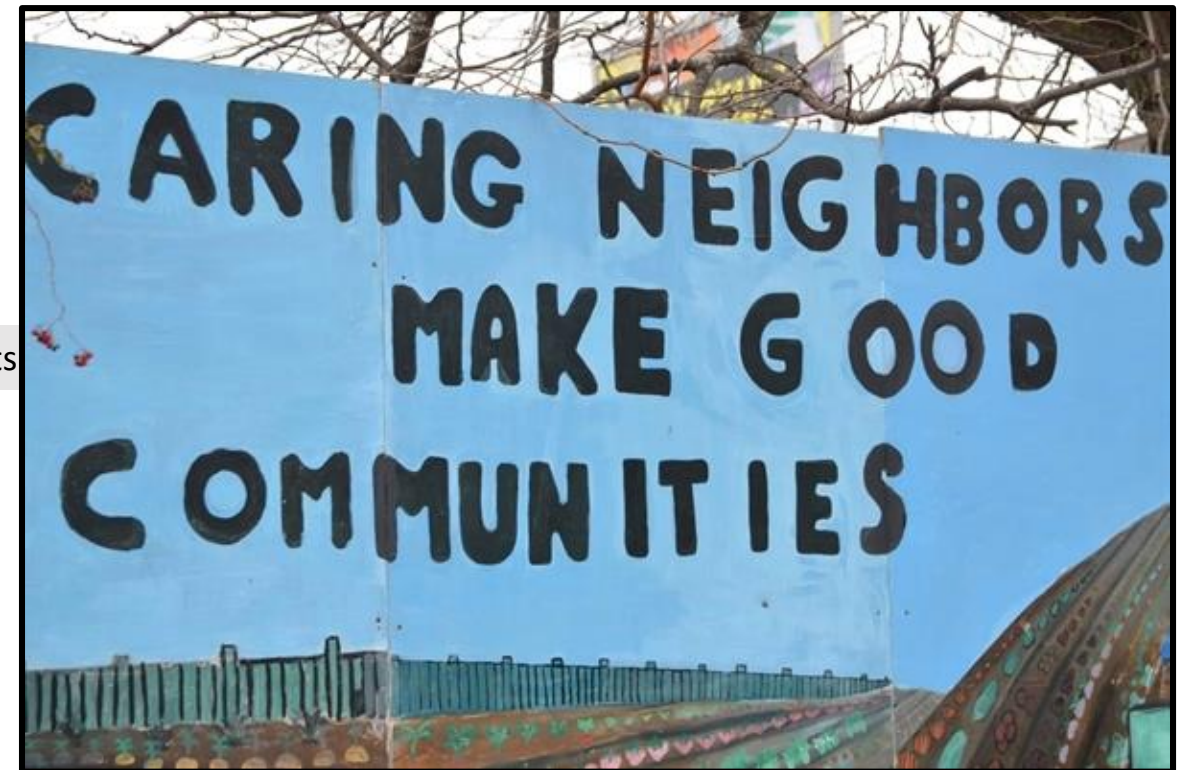 CARING NEIGHBORS
MAKE GOOD
COMMUNITIES